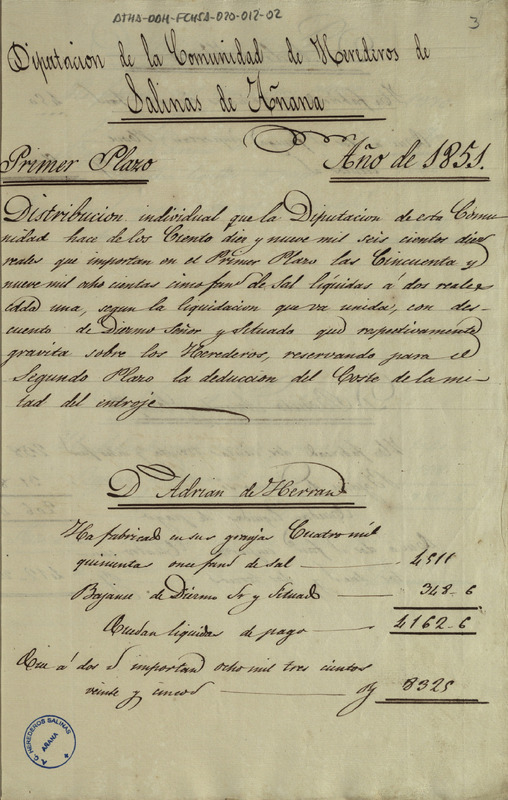 ATHA-DAH-FCHSA-020-012-02
3
Diputacion de la Comunidad de Herederos de
Salinas de Añana
Primer Plazo Año de 1851.
Distribucion individual que la Diputacion de esta Comu-
nidad hace de los Ciento diez y nueve mil seis cientos diez
reales que importan en el Primer Plazo las Cincuenta y
nueve mil ocho cientas cinco fan.s de sal liquidas a dos reales
cada una, segun la liquidacion que va unida, con des-
cuento de Diezmo Señor y Situado que respectivamente
gravita sobre los Herederos, reservando para el
Segundo Plazo la deduccion del Coste de la mi-
tad del entroje
D. Adrian de Herran
Ha fabricado en sus granjas Cuatro mil
quinientas once fan.s de sal 4511
Bajanse de Diezmo Sr y Situado 348-6
Quedan liquidas de pago 4162-6
Que á dos rs importan ocho mil tres cientos
veinte y cinco 8325
A. C. HEREDEROS SALINAS
AÑANA